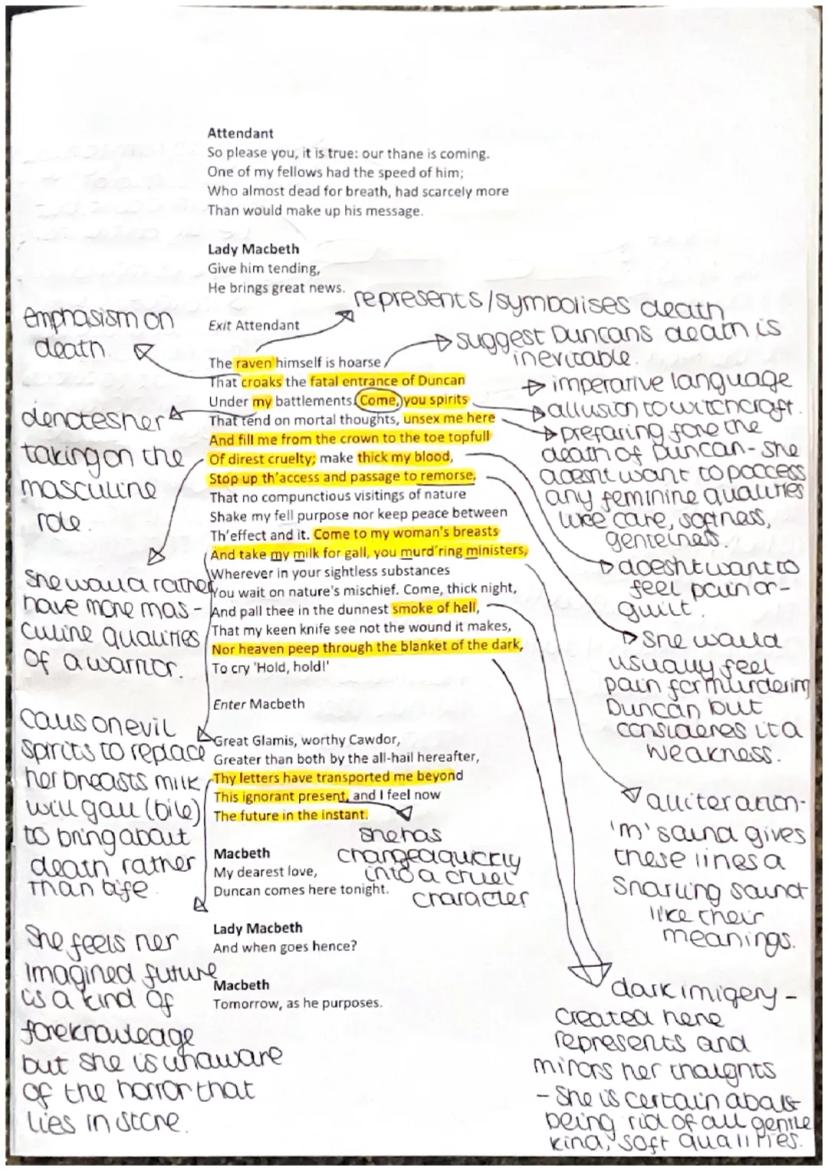 Attendant
So please you, it is true: our thane is coming.
One of my fellows had the speed of him;
Who almost dead for breath, had scarcely more
Than would make up his message.
Lady Macbeth
Give him tending,
He brings great news.
Exit Attendant
The raven himself is hoarse
That croaks the fatal entrance of Duncan
Under my battlements. Come, you spirits
That tend on mortal thoughts, unsex me here
And fill me from the crown to the toe topfull
Of direst cruelty; make thick my blood,
Stop up th'access and passage to remorse,
That no compunctious visitings of nature
Shake my fell purpose nor keep peace between
Th'effect and it. Come to my woman's breasts
And take my milk for gall, you murd'ring ministers,
Wherever in your sightless substances
You wait on nature's mischief. Come, thick night,
And pall thee in the dunnest smoke of hell,
That my keen knife see not the wound it makes,
Nor heaven peep through the blanket of the dark,
To cry 'Hold, hold!'
Enter Macbeth
Great Glamis, worthy Cawdor,
Greater than both by the all-hail hereafter,
Thy letters have transported me beyond
This ignorant present, and I feel now
The future in the instant.
Macbeth
My dearest love,
Duncan comes here tonight.
Lady Macbeth
And when goes hence?
Macbeth
Tomorrow, as he purposes.
emphasism on
death.
denotes her
taking on the
masculine
role.
she would rather
have more mas-
culine qualities
of a warrior.
calls on evil
spirits to replace
her breasts milk
will gall (bile)
to bring about
death rather
than life.
She feels her
imagined future
is a kind of
foreknowleage
but she is unaware
of the horror that
lies in store.
represents/symbolises death
suggest Duncans death is
inevitable.
imperative language
allusion to witchcraft.
preparing fore the
death of Duncan - she
doesnt want to poccess
any feminine qualities
like care, softness,
genteiness.
doesnt want to
feel pain or
guilt.
she would
usually feel
pain for murdering
Duncan but
consideres it a
weakness.
alliteration-
'm' sound gives
these lines a
snarling sound
like their
meanings.
she has
changed quickly
into a cruel
character
dark imigery -
created here
represents and
mirrors her thoughts
- She is certain about
being rid of all gentle
kind, soft qualities.